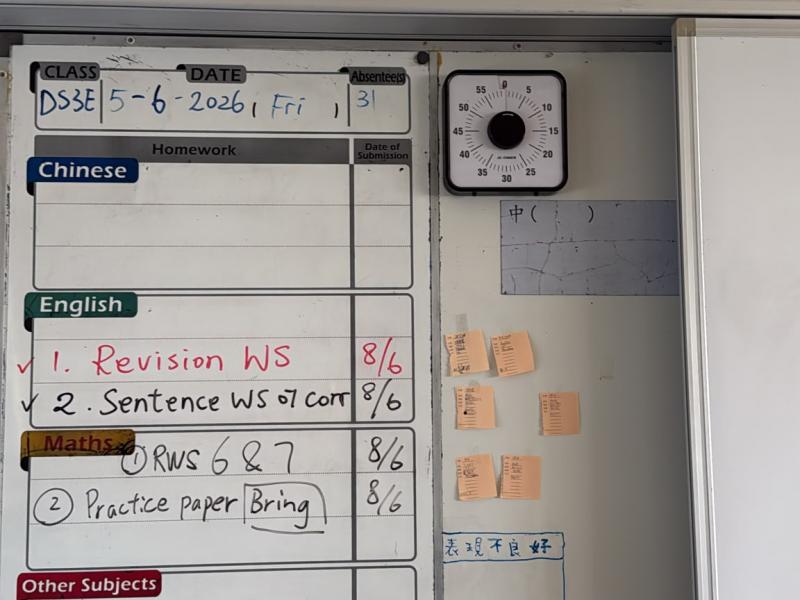 CLASS DATE Absentee(s)
DS3E 5-6-2026 ( Fri ) 31
Homework Date of Submission
Chinese
English
✓ 1. Revision WS 8/6
✓ 2. Sentence WS 07 corr 8/6
Maths
① RWS 6 & 7 8/6
② Practice paper Bring 8/6
Other Subjects
0
5
10
15
20
25
30
35
40
45
50
55
中( )
表現不良好